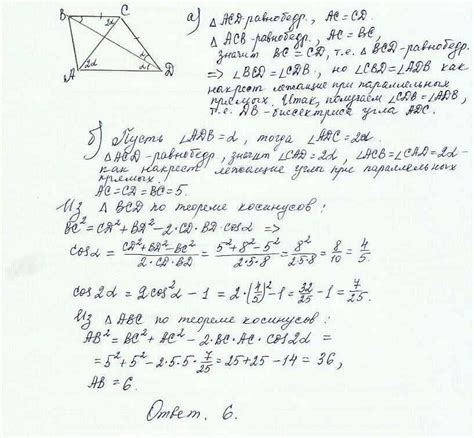 B C a) △ ACD-равнобедр., AC = CD.
△ ACB-равнобедр., AC = BC,
значит BC = CD, т.е. △ BCD-равнобедр.
A 2α α D => ∠BCD = ∠CDB, но ∠CBD = ∠ADB как
накрест лежащие при параллельных
прямых. Итак, получаем ∠CDB = ∠ADB,
т.е. DB - биссектриса угла ADC.
б) Пусть ∠ADB = α, тогда ∠ADC = 2α.
△ACD - равнобедр., значит ∠CAD = 2α, ∠ACB = ∠CAD = 2α -
как накрест лежащие углы при параллельных
прямых.
AC = CD = BC = 5.
Из △ BCD по теореме косинусов:
BC² = CD² + BD² - 2·CD·BD·cosα =>
cosα = (CD² + BD² - BC²)/(2·CD·BD) = (5² + 8² - 5²)/(2·5·8) = 8²/(2·5·8) = 8/10 = 4/5
cos2α = 2cos²α - 1 = 2·(4/5)² - 1 = 32/25 - 1 = 7/25.
Из △ABC по теореме косинусов:
AB² = BC² + AC² - 2·BC·AC·cos2α =
= 5² + 5² - 2·5·5·7/25 = 25 + 25 - 14 = 36,
AB = 6.
Ответ. 6.